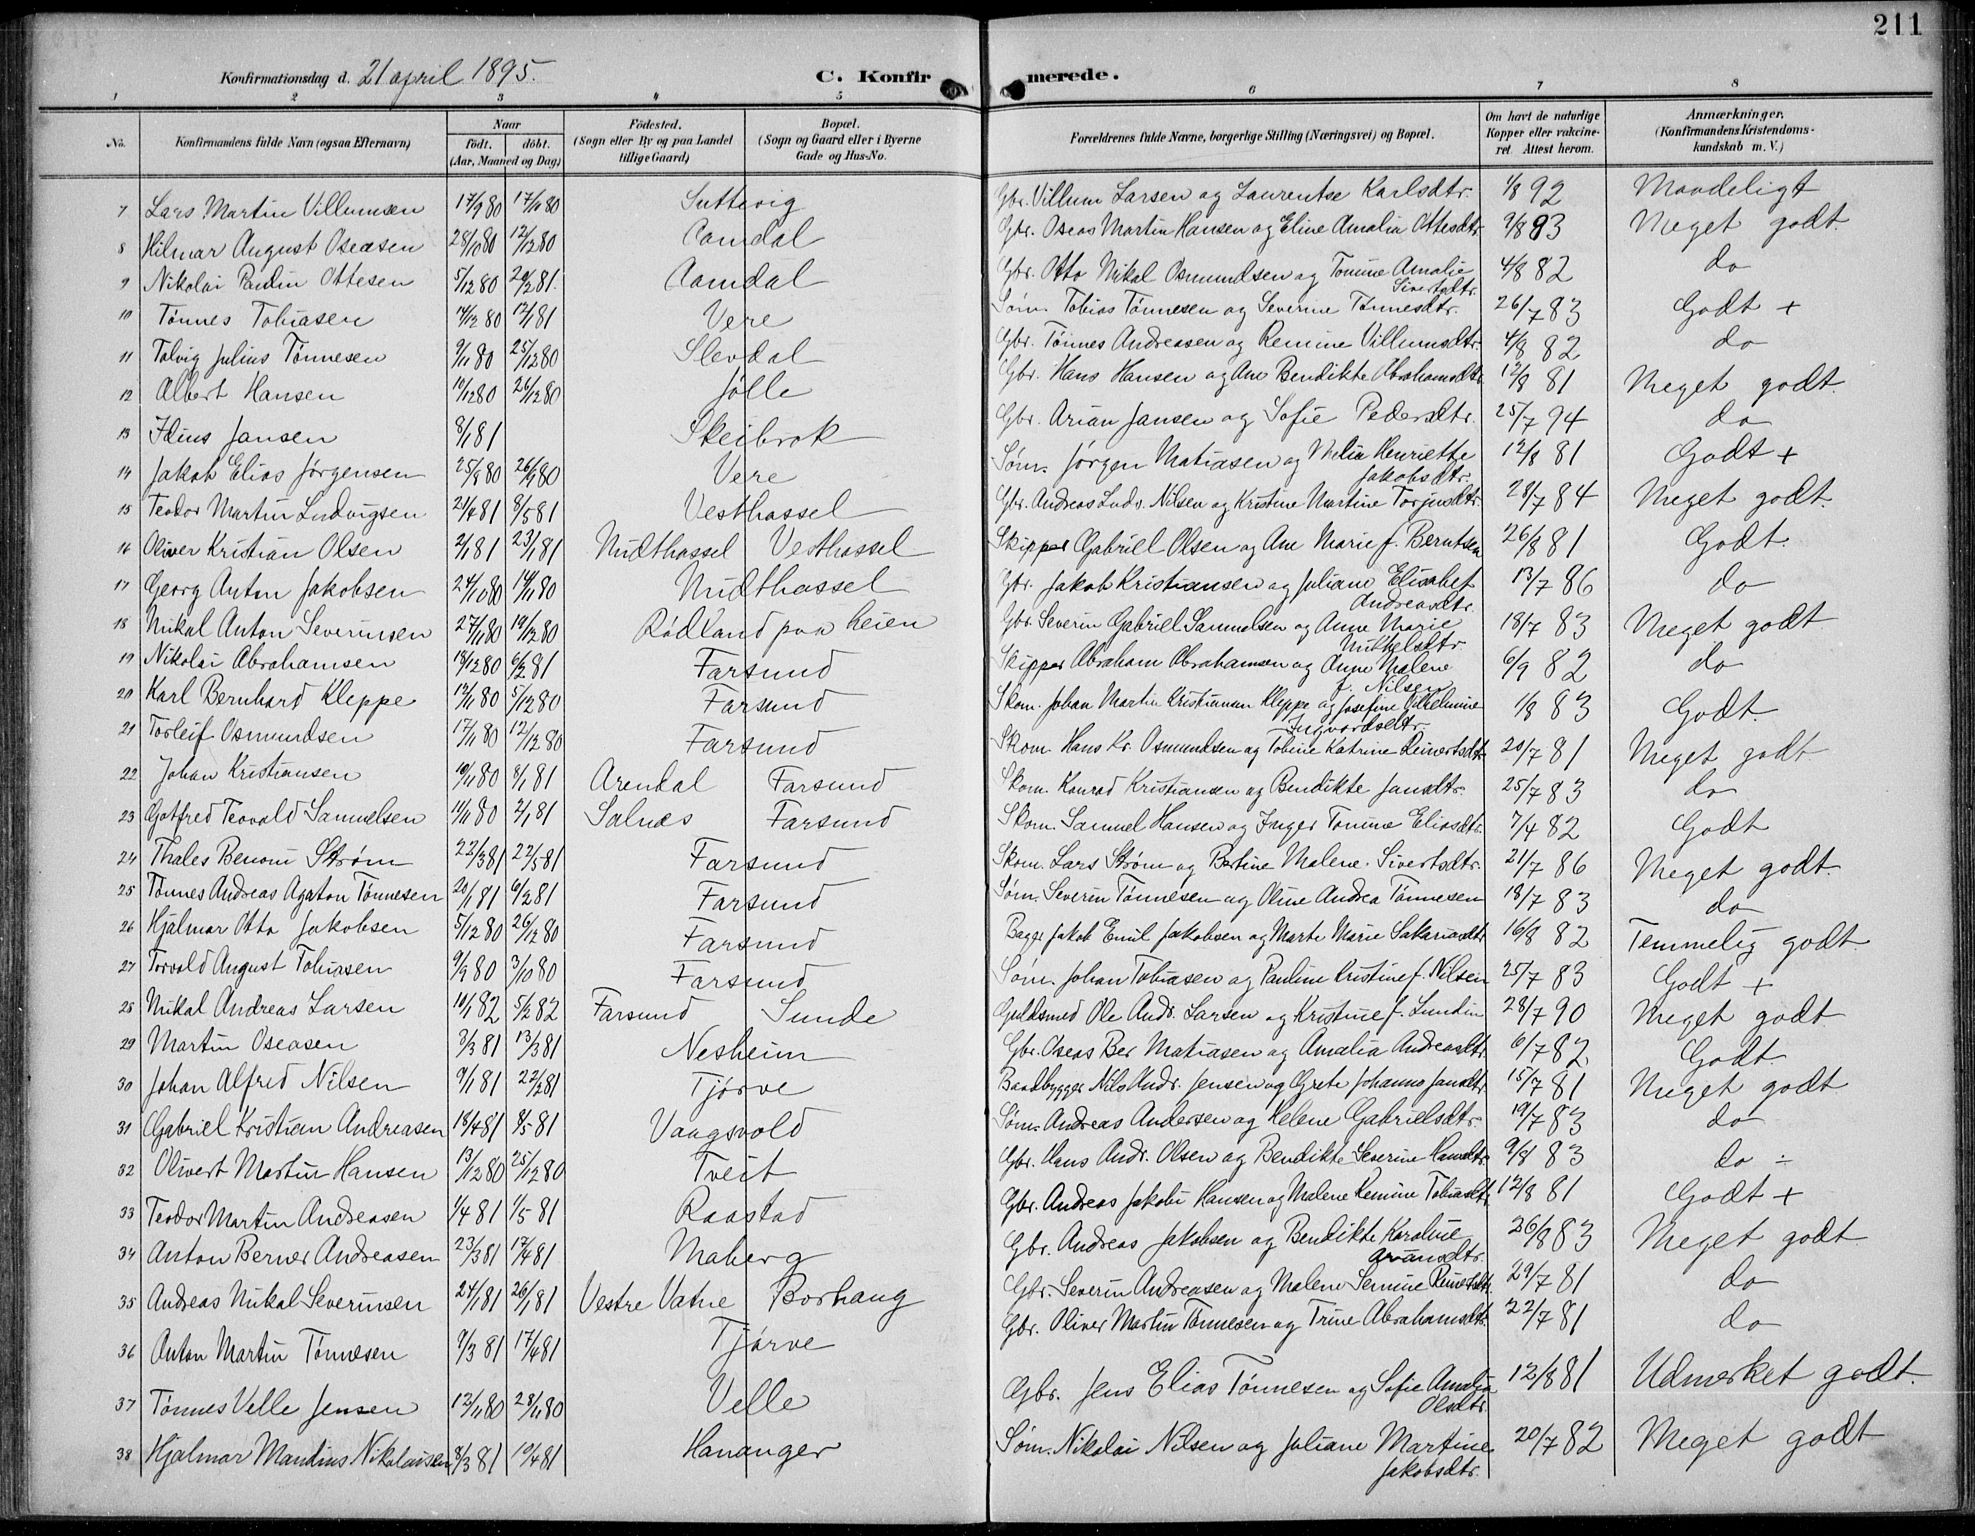 211
Konfirmationsdag d. 21 april 1895. C. Konfirmerede.
1 2 3 4 5 6 7 8
No. Konfirmandens fulde Navn (ogsaa Efternavn) Naar født. døbt. (Aar, Maaned og Dag) Fødested. (Sogn eller By og paa Landet tillige Gaard) Bopæl. (Sogn og Gaard eller i Byerne Gade og Hus-No. Forældrenes fulde Navne, borgerlige Stilling (Næringsvei) og Bopæl. Om havt de naturlige Kopper eller vaccineret Attest herom. Anmærkninger. (Konfirmandens Kristendomskundskab m. V.)
7 Lars Martin Villumsen 17/9 80 17/10 80 Suttevig Gbr. Villum Larsen og Laurentse Karlsdtr. 1/8 92 Maadeligt
8 Hilmar August Oseasen 28/10 80 12/12 80 Aamdal Gbr. Oseas Martin Hansen og Eline Amalia Ottesdtr. 9/8 93 Meget godt.
9 Nikolai Paulin Ottesen 5/12 80 20/2 81 Aamdal Gbr. Otto Nikal Osmundsen og Tomine Amalie Sivertsdtr. 4/8 82 do
10 Tønnes Tobiasen 14/12 80 12/1 81 Vere Søm. Tobias Tønnesen og Severine Tønnesdtr. 26/7 83 Godt +
11 Tolvig Julius Tønnesen 9/11 80 25/12 80 Slevdal Gbr. Tønnes Andreasen og Remine Villumsdtr. 4/8 82 do
12 Albert Hansen 10/12 80 26/12 80 Jølle Gbr. Hans Hansen og Ane Bendikte Abrahamsdtr. 12/8 81 Meget godt.
13 Idius Jansen 8/1 81 Skeibrok Gbr. Arian Jansen og Sofie Pedersdtr. 25/7 94 do
14 Jakob Elias Jørgensen 25/8 80 26/9 80 Vere Søm. Jørgen Matiasen og Melia Henriette Jakobsdtr. 12/8 81 Godt +
15 Teodor Martin Ludvigsen 21/4 81 8/5 81 Vesthassel Gbr. Andreas Ludv. Nilsen og Kristine Martine Torjusdtr. 28/7 84 Meget godt.
16 Oliver Kristian Olsen 2/1 81 23/1 81 Midthassel Vesthassel Skipper Gabriel Olsen og Ane Marie f. Berntsen 26/8 81 Godt.
17 Georg Anton Jakobsen 24/10 80 14/11 80 Midthassel Gbr. Jakob Kristiansen og Juliane Elisabet Andreasdtr. 13/7 86 do
18 Mikal Anton Severinsen 27/11 80 19/12 80 Rødland paa heien Gbr. Severin Gabriel Samuelsen og Anne Marie Mikkelsdtr. 18/7 83 Meget godt
19 Nikolai Abrahamsen 18/12 80 6/2 81 Farsund Skipper Abraham Abrahamsen og Anne Malene f. Nilsen 6/9 82 do
20 Karl Bernhard Kleppe 12/11 80 5/12 80 Farsund Skom. Johan Martin Kristiansen Kleppe og Josefine Vilhelmine Ingvardsdtr. 1/8 83 Godt.
21 Torleif Osmundsen 17/11 80 12/12 80 Farsund Skom. Hans Kr. Osmundsen og Tobine Katrine Reinertsdtr. 20/7 81 Meget godt.
22 Johan Kristiansen 10/11 80 8/1 81 Arendal Farsund Skom. Konrad Kristiansen og Bendikte Jansdtr. 25/7 83 do
23 Gotfred Teovald Samuelsen 11/11 80 2/1 81 Salnes Farsund Skom. Samuel Hansen og Inger Tomine Eliasdtr. 7/4 82 Godt
24 Thales Benoni Strøm 22/3 81 22/5 81 Farsund Skom. Lars Strøm og Bertine Malene Sivertsdtr. 21/7 86 Meget godt.
25 Tønnes Andreas Agaton Tønnesen 20/1 81 6/2 81 Farsund Søm. Severin Tønnesen og Oline Andrea Tønnesen 18/7 83 do
26 Hjalmar Otto Jakobsen 5/12 80 26/12 80 Farsund Bager Jakob Emil Jakobsen og Marte Marie Sakariasdtr. 16/8 82 Temmelig godt.
27 Torvald August Tobiasen 9/9 80 3/10 80 Farsund Søm. Johan Tobiasen og Pauline Kristine f. Nilsen 25/7 83 Godt +
28 Mikal Andreas Larsen 10/1 82 5/2 82 Farsund Sunde Guldsmed Ole Andr. Larsen og Kristine f. Lundin 28/7 90 Meget godt
29 Martin Oseasen 3/3 81 13/3 81 Nesheim Gbr. Oseas Ber Matiasen og Amalia Andreasdtr. 6/7 82 Godt.
30 Johan Alfred Nilsen 9/1 81 22/2 81 Tjørve Baadbygger Nils Andr. Jensen og Grete Johanna Jansdtr. 15/7 81 Meget godt
31 Gabriel Kristian Andreasen 18/4 81 8/5 81 Vaagsvold Søm. Andreas Andersen og Helene Gabrielsdtr. 19/7 83 do
32 Olivert Martin Hansen 13/12 80 25/12 80 Tveit Gbr. Hans Andr. Olsen og Bendikte Severine Hansdtr. 9/8 83 do ÷
33 Teodor Martin Andreasen 1/4 81 1/5 81 Raastad Gbr. Andreas Jakobi Hansen og Malene Remine Tobiasdtr. 12/8 81 Godt +
34 Anton Berner Andreasen 23/3 81 17/4 81 Maberg Gbr. Andreas Jakobsen og Bendikte Karoline Ariansdtr. 26/8 83 Meget godt
35 Andreas Mikal Severinsen 24/1 81 26/1 81 Vestre Vatne Borhaug Gbr. Severin Andreasen og Malene Semine Reinertsdtr. 29/7 81 do
36 Anton Martin Tønnesen 9/3 81 17/4 81 Tjørve Gbr. Oliver Martin Tønnesen og Trine Abrahamsdtr. 22/7 81 do
37 Tønnes Velle Jensen 12/11 80 28/11 80 Velle Gbr. Jens Elias Tønnesen og Sofie Amalia Olsdtr. 12/8 81 Udmerket godt.
38 Hjalmar Mandius Nikolaisen 8/3 81 10/4 81 Hananger Søm. Nikolai Nilsen og Juliane Martine Jakobsdtr. 20/7 82 Meget godt